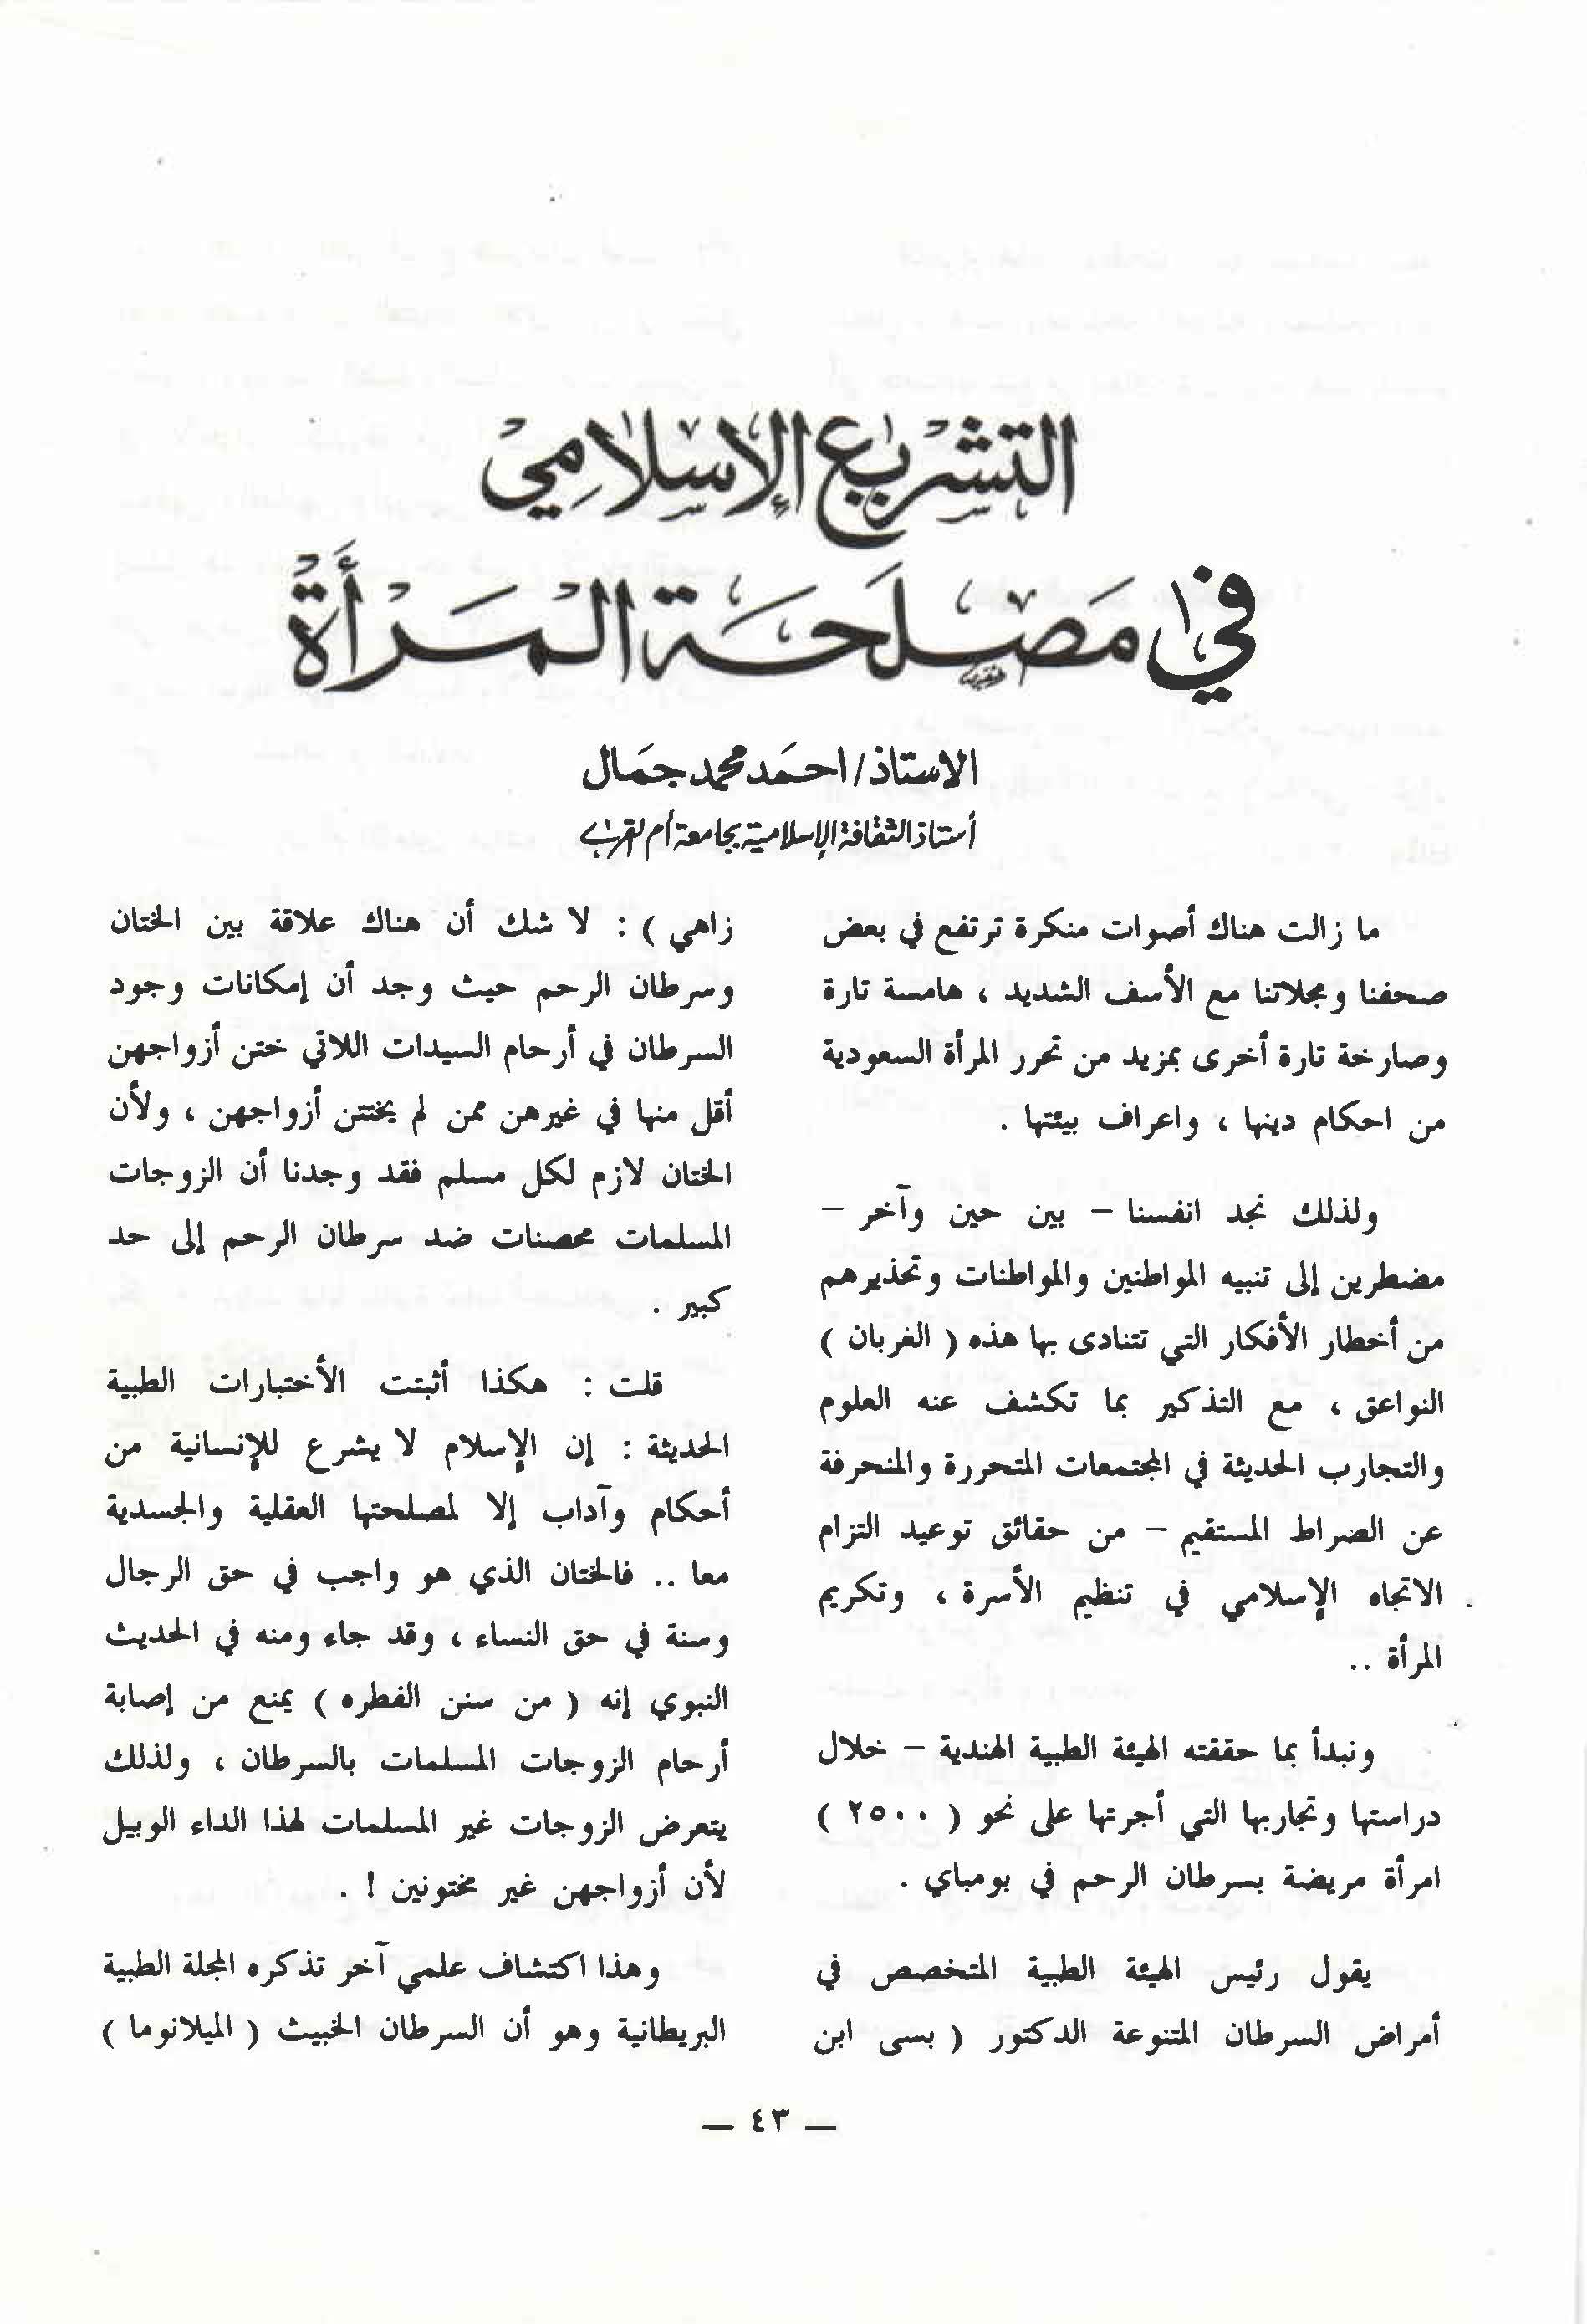 التشريع الإسلامي
في مصلحة المرأة
الاستاذ/ احمد محمد جمال
أستاذ الثقافة الإسلامية بجامعة أم القرى
ما زالت هناك أصوات منكرة ترتفع في بعض
صحفنا ومجلاتنا مع الأسف الشديد ، هامسة تارة
وصارخة تارة أخرى بمزيد من تحرر المرأة السعودية
من احكام دينها ، واعراف بيئتها .
ولذلك نجد انفسنا – بين حين وآخر –
مضطرين إلى تنبيه المواطنين والمواطنات وتحذيرهم
من أخطار الأفكار التي تتنادى بها هذه ( الغربان )
النواعق ، مع التذكير بما تكشف عنه العلوم
والتجارب الحديثة في المجتمعات المتحررة والمنحرفة
عن الصراط المستقيم – من حقائق توعيد التزام
الاتجاه الإسلامي في تنظيم الأسرة ، وتكريم
المرأة ..
ونبدأ بما حققته الهيئة الطبية الهندية – خلال
دراستها وتجاربها التي أجرتها على نحو ( ٢٥٠٠ )
امرأة مريضة بسرطان الرحم في بومباي .
يقول رئيس الهيئة الطبية المتخصص في
أمراض السرطان المتنوعة الدكتور ( بسى ابن
زاهي ) : لا شك أن هناك علاقة بين الختان
وسرطان الرحم حيث وجد أن إمكانات وجود
السرطان في أرحام السيدات اللاتي ختن أزواجهن
أقل منها في غيرهن ممن لم يختتن أزواجهن ، ولأن
الختان لازم لكل مسلم فقد وجدنا أن الزوجات
المسلمات محصنات ضد سرطان الرحم إلى حد
كبير .
قلت : هكذا أثبتت الأختبارات الطبية
الحديثة : إن الإسلام لا يشرع للإنسانية من
أحكام وآداب إلا لمصلحتها العقلية والجسدية
معا .. فالختان الذي هو واجب في حق الرجال
وسنة في حق النساء ، وقد جاء ومنه في الحديث
النبوي إنه ( من سنن الفطره ) يمنع من إصابة
أرحام الزوجات المسلمات بالسرطان ، ولذلك
يتعرض الزوجات غير المسلمات لهذا الداء الوبيل
لأن أزواجهن غير مختونين ! .
وهذا اكتشاف علمي آخر تذكره المجلة الطبية
البريطانية وهو أن السرطان الخبيث ( الميلانوما )
— ٤٣ —